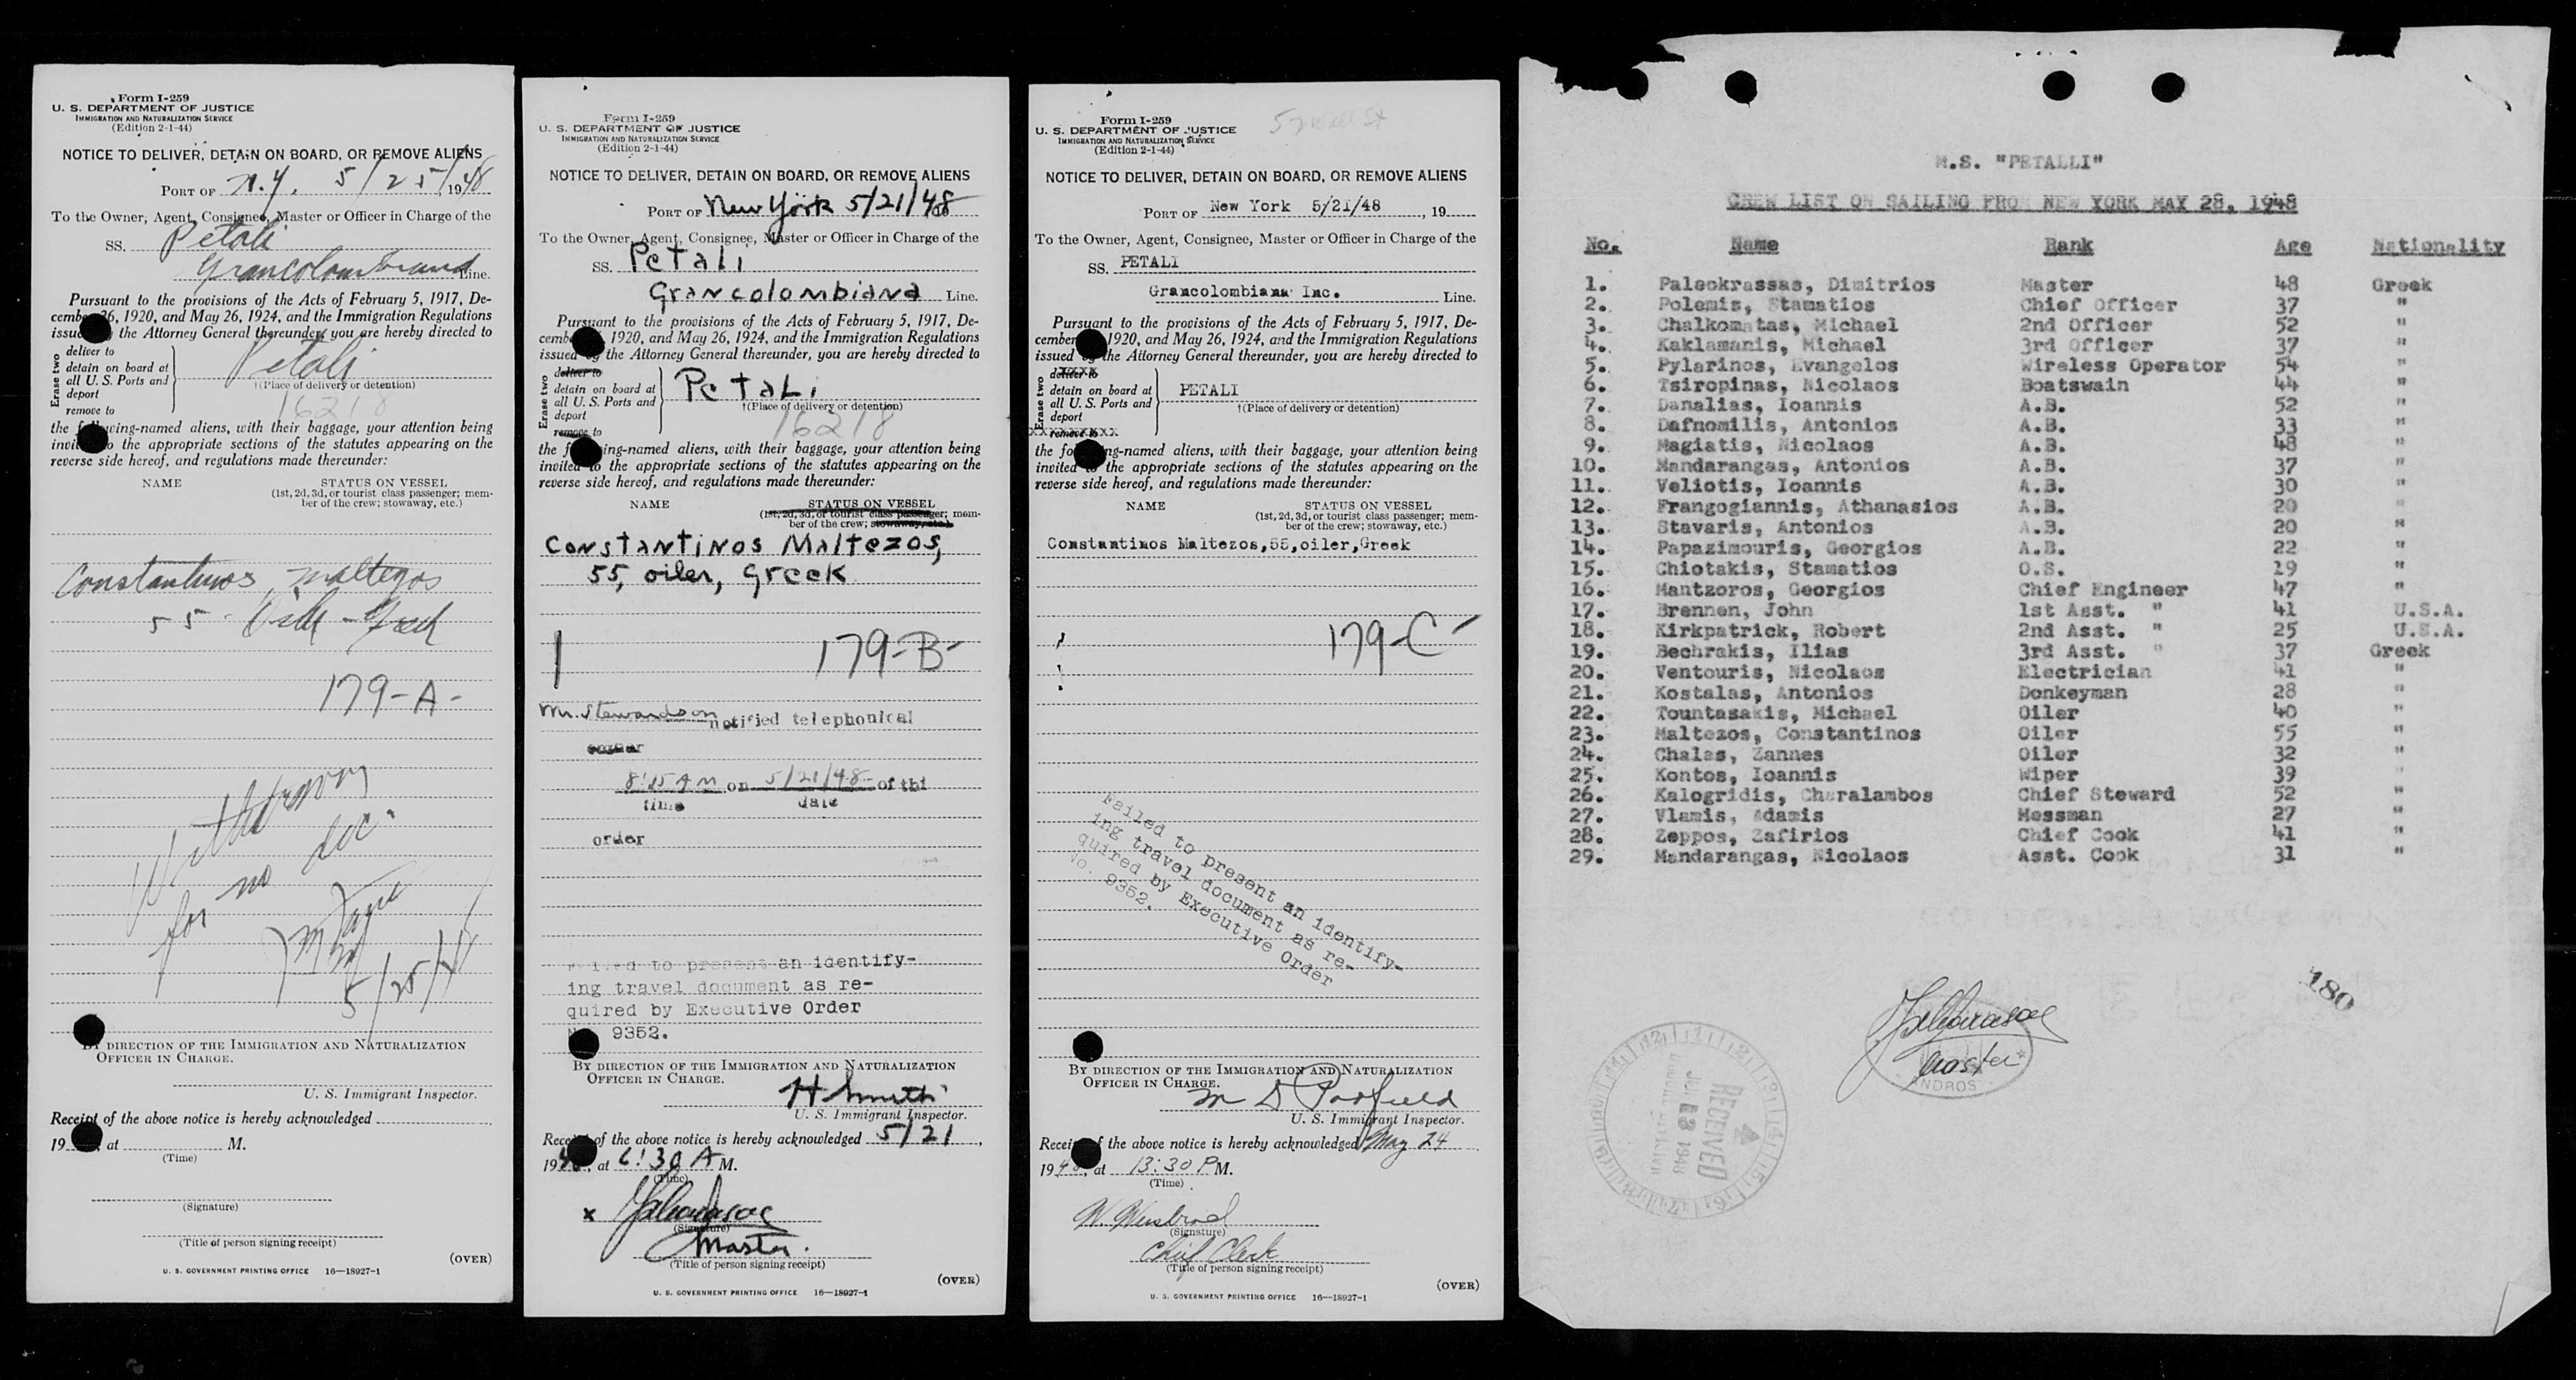 Form I-259
U. S. DEPARTMENT OF JUSTICE
IMMIGRATION AND NATURALIZATION SERVICE
(Edition 2-1-44)
NOTICE TO DELIVER, DETAIN ON BOARD, OR REMOVE ALIENS
PORT OF N.Y. 5/25/1948
To the Owner, Agent, Consignee, Master or Officer in Charge of the
SS. Petali
Grancolombiana Line.
Pursuant to the provisions of the Acts of February 5, 1917, De-
cember 26, 1920, and May 26, 1924, and the Immigration Regulations
issued the Attorney General thereunder, you are hereby directed to
Erase two
deliver to
detain on board at
all U. S. Ports and
deport
remove to
Petali
†(Place of delivery or detention)
16218
the following-named aliens, with their baggage, your attention being
invited to the appropriate sections of the statutes appearing on the
reverse side hereof, and regulations made thereunder:
NAME
STATUS ON VESSEL
(1st, 2d, 3d, or tourist class passenger; mem-
ber of the crew; stowaway, etc.)
Constantinos Maltezos
55 - Oiler - Greek
179-A-
Withdrawn
for no doc.
5/25/48
BY DIRECTION OF THE IMMIGRATION AND NATURALIZATION
OFFICER IN CHARGE.
U. S. Immigrant Inspector.
Receipt of the above notice is hereby acknowledged
19 , at M.
(Time)
(Signature)
(Title of person signing receipt)
(OVER)
U. S. GOVERNMENT PRINTING OFFICE 16—18927-1
Form I-259
U. S. DEPARTMENT OF JUSTICE
IMMIGRATION AND NATURALIZATION SERVICE
(Edition 2-1-44)
NOTICE TO DELIVER, DETAIN ON BOARD, OR REMOVE ALIENS
PORT OF New York 5/21/48
To the Owner, Agent, Consignee, Master or Officer in Charge of the
SS. Petali
Grancolombiana Line.
Pursuant to the provisions of the Acts of February 5, 1917, De-
cember 1920, and May 26, 1924, and the Immigration Regulations
issued by the Attorney General thereunder, you are hereby directed to
Erase two
deliver to
detain on board at
all U. S. Ports and
deport
remove to
Petali
†(Place of delivery or detention)
16218
the following-named aliens, with their baggage, your attention being
invited to the appropriate sections of the statutes appearing on the
reverse side hereof, and regulations made thereunder:
NAME
STATUS ON VESSEL
(1st, 2d, 3d, or tourist class passenger; mem-
ber of the crew; stowaway, etc.)
Constantinos Maltezos,
55, oiler, Greek
179-B-
Mr. Stewardson notified telephonical
8:15 AM on 5/21/48 of thi
time date
order
Failed to present an identify-
ing travel document as re-
quired by Executive Order
No. 9352.
BY DIRECTION OF THE IMMIGRATION AND NATURALIZATION
OFFICER IN CHARGE.
H Smith
U. S. Immigrant Inspector.
Receipt of the above notice is hereby acknowledged 5/21,
1948, at 6:30 A M.
(Time)
x
(Signature)
Master.
(Title of person signing receipt)
(OVER)
U. S. GOVERNMENT PRINTING OFFICE 16—18927-1
57 Wall St
Form I-259
U. S. DEPARTMENT OF JUSTICE
IMMIGRATION AND NATURALIZATION SERVICE
(Edition 2-1-44)
NOTICE TO DELIVER, DETAIN ON BOARD, OR REMOVE ALIENS
PORT OF New York 5/21/48, 19
To the Owner, Agent, Consignee, Master or Officer in Charge of the
SS. PETALI
Grancolombiana Inc. Line.
Pursuant to the provisions of the Acts of February 5, 1917, De-
cember 1920, and May 26, 1924, and the Immigration Regulations
issued by the Attorney General thereunder, you are hereby directed to
Erase two
deliver to
detain on board at
all U. S. Ports and
deport
remove to
PETALI
†(Place of delivery or detention)
the following-named aliens, with their baggage, your attention being
invited to the appropriate sections of the statutes appearing on the
reverse side hereof, and regulations made thereunder:
NAME
STATUS ON VESSEL
(1st, 2d, 3d, or tourist class passenger; mem-
ber of the crew; stowaway, etc.)
Constantinos Maltezos,55,oiler,Greek
179-C
Failed to present an identify-
ing travel document as re-
quired by Executive Order
No. 9352.
BY DIRECTION OF THE IMMIGRATION AND NATURALIZATION
OFFICER IN CHARGE.
U. S. Immigrant Inspector.
Receipt of the above notice is hereby acknowledged May 24
1948, at 13:30 P M.
(Time)
(Signature)
Chief Clerk
(Title of person signing receipt)
(OVER)
U. S. GOVERNMENT PRINTING OFFICE 16—18927-1
M.S. "PETALLI"
CREW LIST ON SAILING FROM NEW YORK MAY 28, 1948
No. Name Rank Age Nationality
1. Paleokrassas, Dimitrios Master 48 Greek
2. Polemis, Stamatios Chief Officer 37 "
3. Chalkomatas, Michael 2nd Officer 52 "
4. Kaklamanis, Michael 3rd Officer 37 "
5. Pylarinos, Evangelos Wireless Operator 54 "
6. Tsiropinas, Nicolaos Boatswain 44 "
7. Danalias, Ioannis A.B. 52 "
8. Dafnomilis, Antonios A.B. 33 "
9. Magiatis, Nicolaos A.B. 48 "
10. Mandarangas, Antonios A.B. 37 "
11. Veliotis, Ioannis A.B. 30 "
12. Frangogiannis, Athanasios A.B. 20 "
13. Stavaris, Antonios A.B. 20 "
14. Papazimouris, Georgios A.B. 22 "
15. Chiotakis, Stamatios O.S. 19 "
16. Mantzoros, Georgios Chief Engineer 47 "
17. Brennen, John 1st Asst. " 41 U.S.A.
18. Kirkpatrick, Robert 2nd Asst. " 25 U.S.A.
19. Bechrakis, Ilias 3rd Asst. " 37 Greek
20. Ventouris, Nicolaos Electrician 41 "
21. Kostalas, Antonios Donkeyman 28 "
22. Tountasakis, Michael Oiler 40 "
23. Maltezos, Constantinos Oiler 55 "
24. Chalas, Zannes Oiler 32 "
25. Kontos, Ioannis Wiper 39 "
26. Kalogridis, Charalambos Chief Steward 52 "
27. Vlamis, Adamis Messman 27 "
28. Zeppos, Zafirios Chief Cook 41 "
29. Mandarangas, Nicolaos Asst. Cook 31 "
180
Master
ANDROS
RECEIVED
1948